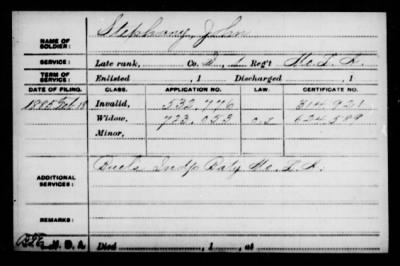 NAME OF SOLDIER: Stephany, John
SERVICE: Late rank, Co. B, 1 Reg't Mo. L. A.
TERM OF SERVICE: Enlisted , 1 Discharged , 1
DATE OF FILING. CLASS. APPLICATION NO. LAW. CERTIFICATE NO.
Feb 18 Invalid, 532.776 314.921
Widow, 723.053 624.599
Minor,
ADDITIONAL SERVICES: Indp Baty Mo. L. A.
REMARKS:
Died , 1 , at